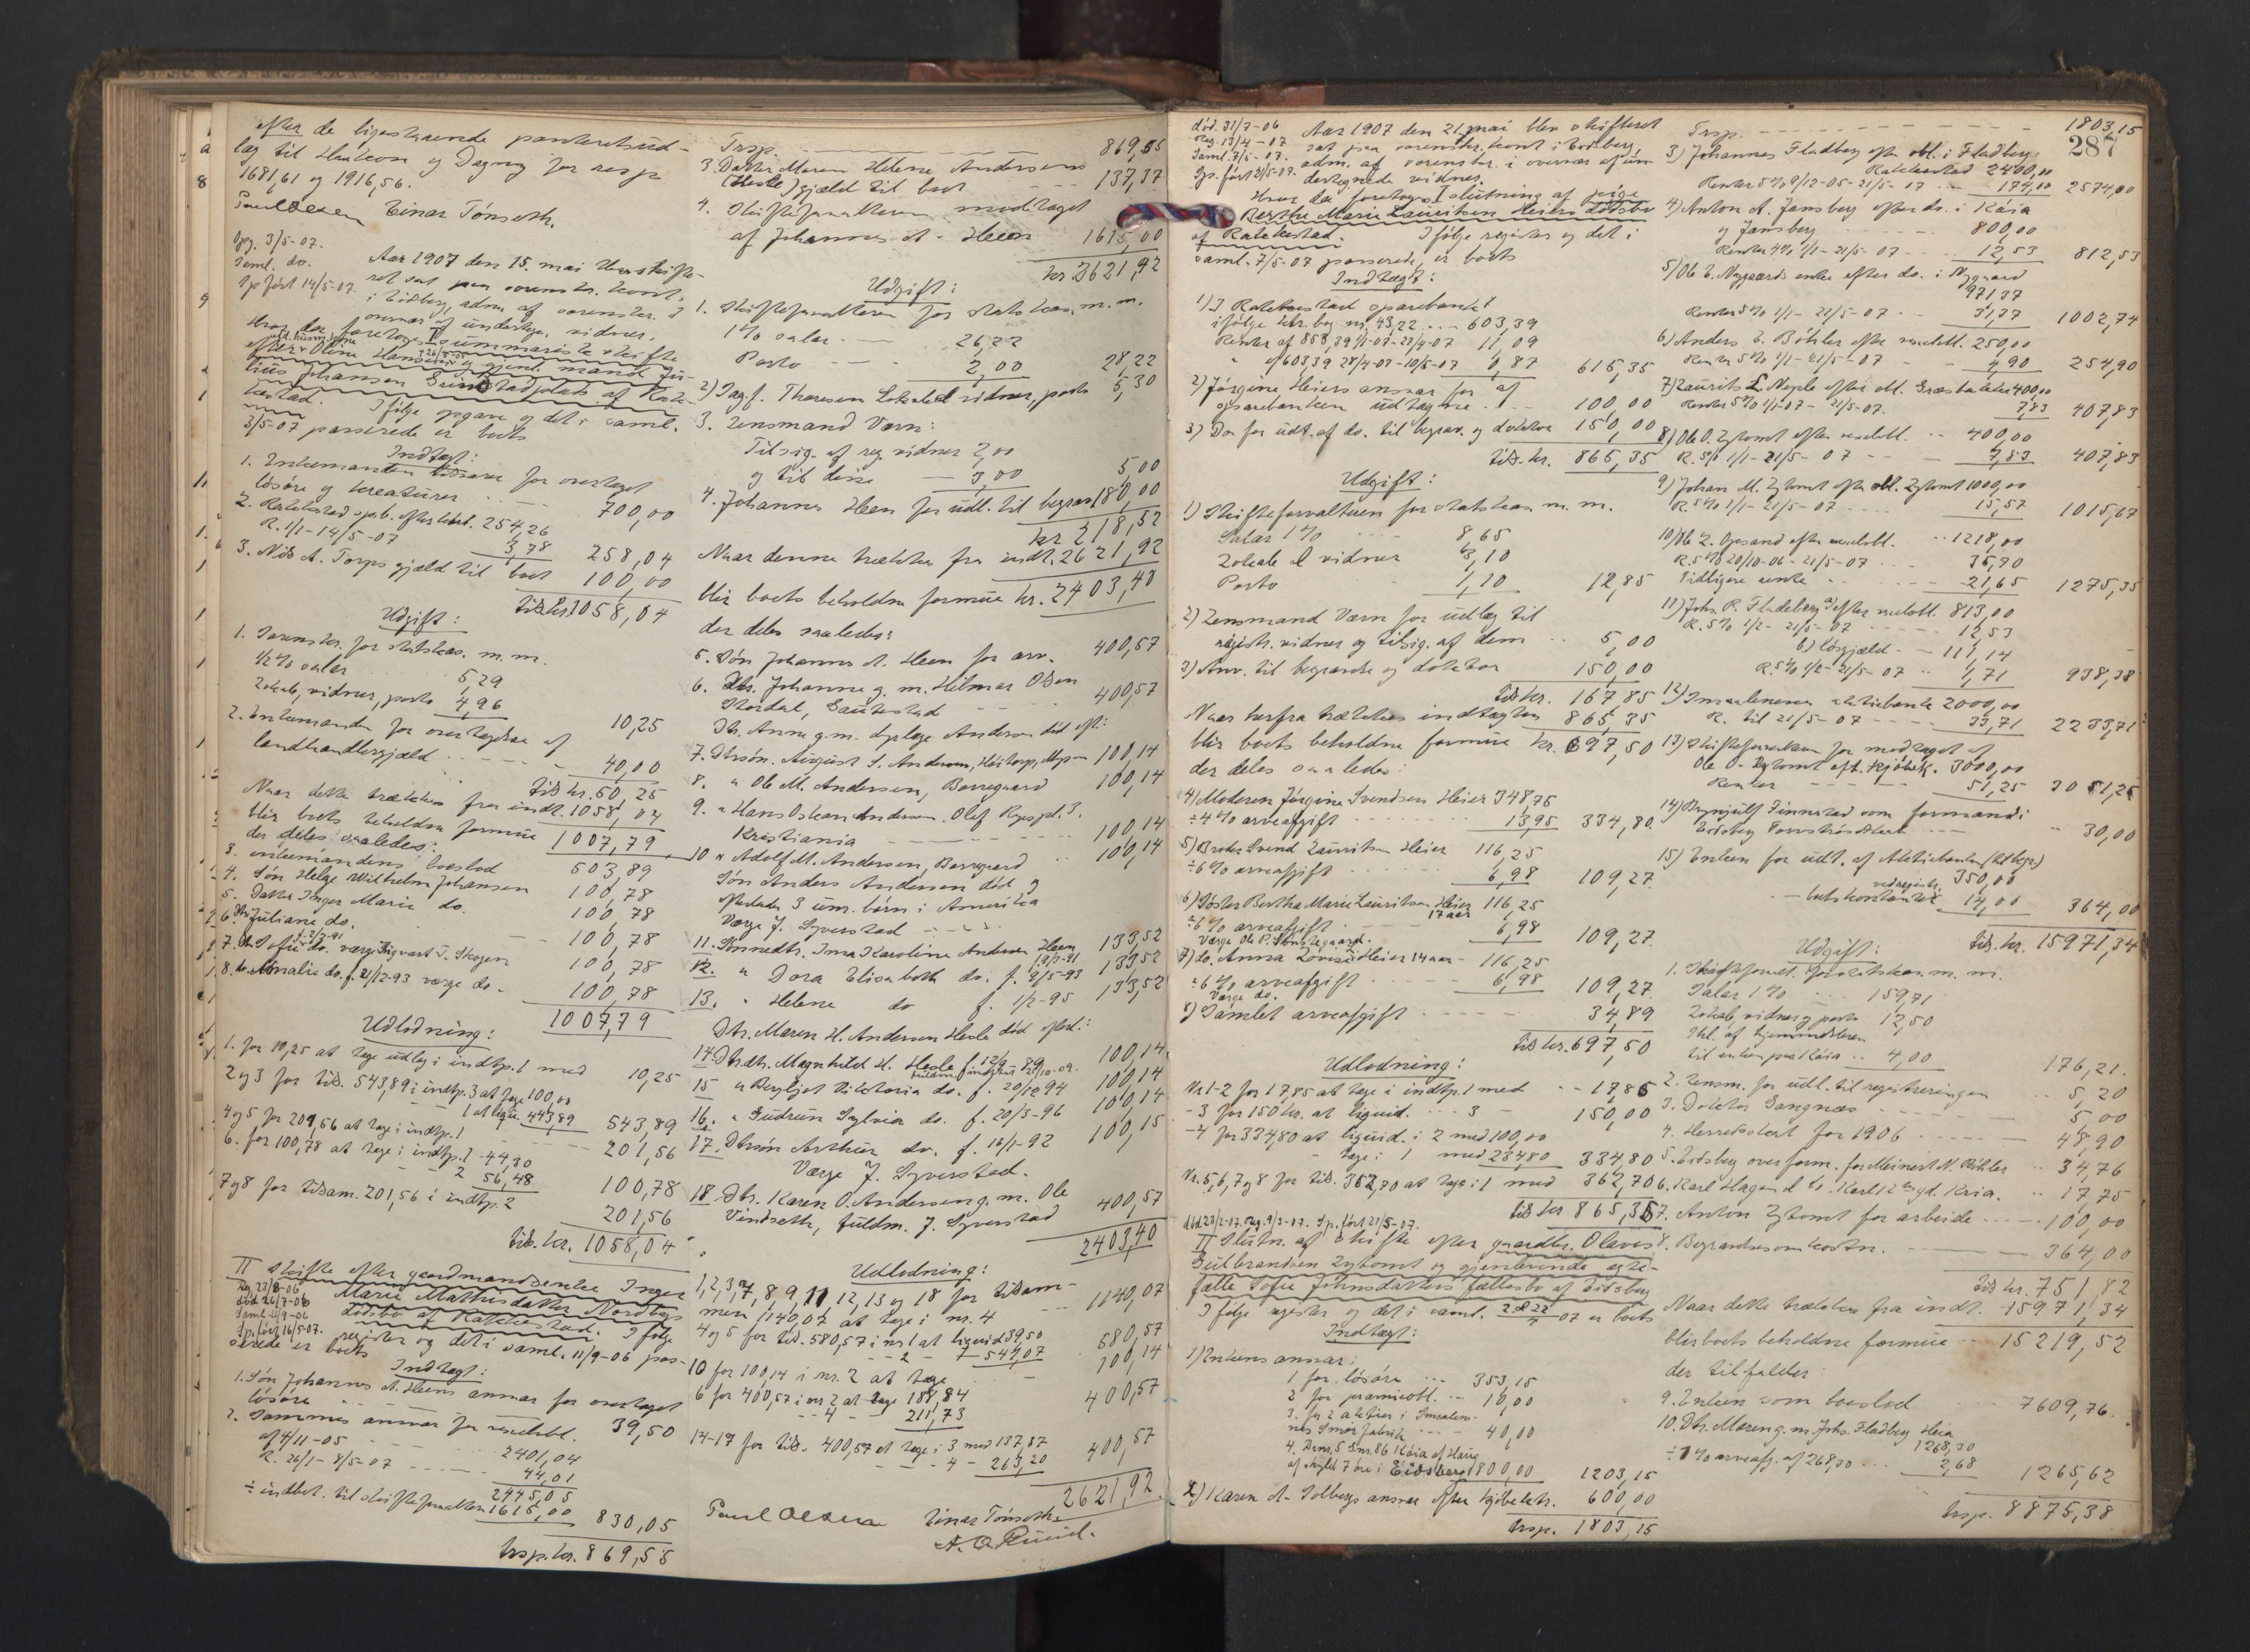 efter de ligestaaende panteretsud-
læg til Haakon og Dagny for resp
1681,61 og 1916,56.
Paul Olsen Einar Tönseth.
Opg. 3/5-07.
Saml. do.
Sp. ført 14/5-07.
Aar 1907 den 15. mai blev skifte-
ret sat paa sorenskr. kont.
i Eidsberg, adm. af sorenskr. i
overvær af undertegn. vidner.
Hvor da foretoges I summarisk skifte
efter Oline Hansen og gjenl. mand Ju-
lius Johansen Grimstadplads af Rak-
kestad. Ifølge opgave og det i saml.
3/5-07 passerede er boets
Indtægt:
1. Enkemanden ansvar for overtaget
løsøre og kreaturer 700,00
2. Rakkestad spb. efter kbl. 254,26
R. 1/1-14/5-07 3,78 258,04
3. Nils A. Torps gjæld til boet 100,00
tils. kr. 1058,04
Udgift:
1. Sorenskr. for statskas. m. m.
1/2 % salær 5,29
Lokale, vidner, porto 4,96 10,25
2. Enkemanden for overtagelse af
landhandlergjæld 40,00
tils kr. 50,25
Naar dette trækkes fra indt. 1058,04
blir boets beholdne formue 1007,79
der deles saaledes:
3. enkemandens boeslod 503,89
4. Søn Helge Wilhelm Johansen 100,78
5. Datter Inger Marie do. 100,78
6. Dtr. Juliane do. 100,78
7. " Sofie do. værge Sigvart J. Skogen 100,78
8. " Amalie do. f. 21/12-93 værge do. 100,78
1007,79
Udlodning:
1. for 10,25 at tage udlæg i indtp. 1 med 10,25
2 og 3 for tils. 543,89 i indtp. 3 at tage 100,00
1 at liqui. 443,89 543,89
4 og 5 for 201,56 at tage i indtp. 1 201,56
6. for 100,78 at tage i indtp. 1 - 44,30
2 56,48 100,78
7 og 8 for tilsam. 201,56 i indtp. 2 201,56
tils. kr. 1058,04
II Skifte efter gaardmandsenke Inger
Marie Mathisdatter Nordbys
dødsbo af Rakkestad. Ifølge
Reg. 23/8-06
død 26/7-06
Saml. 11/9-06
Sp. ført 16/5-07.
register og det i saml. 11/9-06 pas-
serede er boets
Indtægt:
1. Søn Johannes A. Heens ansvar for overtaget
løsøre 39,50
2. Sammes ansvar for vexelobl.
af 4/11-05 2401,04
R. 26/1-8/5-07 44,01
2445,05
÷ indbet. til skifteforvalteren 1615,00 830,05
trsp. kr. 869,55
Trsp. 869,55
3. Datter Maren Helene Andersens
(Hesle) gjæld til boet 137,37
4. Skifteforvalteren modtaget
af Johannes A. Heen 1615,00
kr. 2621,92
Udgift:
1. Skifteforvalteren for statskas. m. m.
1 % salær 26,22
Porto 2,00 28,22
2) Sagf. Thoresen Lokale vidner, porto 5,30
3. LensmandVærn:
Tilsig. af reg. vidner 2,00
og til disse 3,00 5,00
4. Johannes Heen for udl. til begrav 180,00
kr 218,52
Naar denne trækkes fra indt. 2621,92
blir boets beholdne formue kr. 2403,40
der deles saaledes:
5. Søn Johannes A. Heen for arv. 400,57
6. Dtr. Johanne g. m. Hilmar Olsen
Stordal, Gautestad 400,57
Dtr. Anne g. m. Anderson død eft:
7. Dtrsøn. August S. Andersen, 100,14
8. " Ole M. Andersen, Borregaard 100,14
9. " Hans Oskar Andersen. Olaf Ryespl. 3.
Kristiania 100,14
10 " Adolf M. Andersen, Borregaard 100,14
Søn Anders Andersen død og
efterlader 3 um. børn i Amerika
Værge J. Syverstad
11. Sønnedtr. Inna Karoline Andersen Heen 133,52
12. " Dora Elisabeth do. f. 9/5-93 133,52
13. " Helene do f. 1/2-95 133,52
Dtr. Maren H. Andersen Hesle død efterl.:
14. Dtrdtr. Magnhild H. Hesle f. 12/9-89 100,14
15 " Bergljot Viktoria do. f. 20/12 94 100,14
16. " Gudrun Sylvia do. f. 20/3-96 100,14
17. Dtrsøn Arthur do. f. 16/1-92 100,15
Værge J. Syverstad.
18. Dtr. Karen O. Andersen g. m. Ole
Vindseth, fuldm. J. Syverstad 400,57
2403,40
Udlodning:
1,2,3,7,8,9,11,12,13 og 18 for tilsam-
men 1140,07 at tage i nr. 4 1140,07
4 og 5 for tils. 580,57 i nr. 1 at liquid 39,50
2 - 541,07 580,57
10 for 100,14 i nr. 2 at tage 100,14
6 for 400,57 i nr. 2 at tage 188,84
4 - 211,73 400,57
14-17 for tils. 400,57 at tage i 3 med 137,37
4 - 263,20 400,57
2621,92.
Paul Olsen Einar Tönseth
død. 31/7-06
Reg. 13/4-07
Saml. 7/5-07.
Sp. ført 21/5-07.
Aar 1907 den 21 mai blev skifteret
sat paa sorenskr. kont i Eidsberg,
adm. af sorenskr. i overvær af un
dertegnede vidner.
Hvor da foretoges I slutning af pige
Berthe Marie Lauritsen Heiers dødsbo
af Rakkestad. Ifølge register og det i
saml. 7/5-07 passerede, er boets
Indtægt:
1) I Rakkestad sparebank
ifølge ktr. bog nr. 4322 603,39
Renter af 853,39 1/1-07-28/4-07 11,09
" af 603,39 28/4-07-10/5-07 0,87 615,35
2) Jørgine Heiers ansvar for af
sparebanken udtagne 100,00
3) Do for udt. af do. til begrav. og doktor 150,00
tils. kr. 865,35
Udgift:
1) Skifteforvalteren for statskas. m. m.
Salær 1 % 8,65
Lokale & vidner 3,10
Porto 1,10 12,85
2) Lensmand Værn for udlæg til
registr. vidner og tilsig. af dem 5,00
3) Anv. til begravelse og doktor 150,00
tils kr. 167,85
Naar herfra trækkes indtægten 865,35
blir boets beholdne formue kr. 697,50
der deles saaledes:
4) Moderen Jørgine Svendsen Heier 348,75
÷ 4 % arveafgift 13,95 334,80.
5) Broder Svend Lauritsen Heier 116,25
÷ 6 % arveafgift 6,98 109,27.
6) Søster Bertha Marie Lauritsen Heier 116,25
17 aar
÷ 6 % arveafgift 6,98 109,27.
Værge Ole P.
7) do. Anna Lovise Heier 14 aar 116,25
÷ 6 % arveafgift 6,98 109,27
Værge do.
8) Samlet arveafgift 34,89
tils kr. 697,50
Udlodning:
Nr. 1-2 for 17,85 at tage i indtp. 1 med 17,85
- 3 for 150 kr. at liquid. 3 - 150,00
- 4 for 334,80 at liquid. i 2 med 100,00
tage i 1 med 234,80 334,80
Nr. 5, 6, 7 og 8 for tils. 362,70 at tage i 1 med 362,70
tils kr 865,35
død 23/2-07. Reg. 9/3-07. Sp. ført 21/5-07.
II Slutn. af skifte efter gaardbr. Olaves
Gulbrandsen Lytomt og gjenlevende ægte-
fælle Sofie Johnsdatters fællesbo af Eidsberg
Ifølge register og det i saml. 07 er boets
Indtægt:
1) Enkens ansvar:
1 for løsøre 353,15
2 for præmieobl. 10,00
3. for 2 aktier i Smaalene-
nes Smørfabrik 40,00
4. Brnr. 5 Gnr. 86 Kaia af Haug
af skyld 7 øre i Eidsberg 800,00 1203,15
2) Karen A. Solbergs ansvar efter kjøbektr. 600,00
trsp. 1803,15
287
Trsp. 1803,15
3) Johannes Fladberg efter obl. i Fladberg
Rakkestad 2400,00
Renter 5% 9/12-05-21/5-07 174,00 2574,00
4) Anton A. Jansberg efter do. i Kaia
og Jansberg 800,00
Renter 4% 1/1-21/5-07 12,53 812,53
5) Ole E. Nygaards enke efter do. i Nygaard
971,37
Renter 5% 1/1-21/5-07 31,37 1002,74
6) Anders E. Bøhler efter vexelobl. 250,00
Renter 5% 1/1-21/5-07 4,90 254,90
7) Laurits L. Nyple efter obl. Græsbakke 400,00
Renter 5% 1/1-07-21/5-07. 7,83 407,83
8) Ole O. Lytomt efter vexelobl. 400,00
R. 5% 1/1-21/5-07 7,83 407,83
9) Johan M. Lytomt efter obl. Lytomt 1000,00
R. 5% 1/1-21/5-07 15,57 1015,67
10) Ole L. Opsand efter vexelobl. 1218,00
R. 5% 20/10-06-21/5-07 35,70
Tidligere rente 21,65 1275,35
11) Johs. R. Fladeberg a) efter vexelobl. 813,00
R. 5% 1/2-21/5-07 12,53
b) løsgjæld 111,14
R. 5% 1/2-21/5-07 1,71 938,38
12) Smaalenenes aktiebank 2000,00
R. til 21/5-07 33,71 2233,71
13) Skifteforvalteren for modtaget af
Ole O. Lytomt eft. kjøbek. 3000,00
Renter 51,25 3051,25
14) Brynjulf Finnestad som formand i
Eidsberg 30,00
15) Enken for udt. af Aktiebanken (til begr.)
350,00
ved registr.
- boets kontanter 14,00 364,00
tils. kr. 15971,34
Udgift:
1. Skifteforvalt. for statskas. m. m.
Salær 1 % 159,71
Lokale, vidner og porto 12,50
Skl. af hjemmelsbrev
til enken paa Kaia 4,00 176,21.
2. Lensm. for udl. til registreringen 5,20
3. Doktor Sangnæs 5,00
4. Herredsskat for 1906 48,90
5. Eidsberg overform. for Meinert N. Bøhler 34,76
6. Karl Hagen & Co. Karl 12tes gd. Kria. 17,75
7. Anton Lytomt for arbeide 100,00
8. Begravelsesomkostn. 364,00
tils kr. 751,82
Naar dette trækkes fra indt. 15971,34
blir boets beholdne formue 15219,52
der tilfalder:
9. Enken som boeslod 7609,76.
10. Dtr. Maren g. m. Johs. Fladberg Heia
1268,30
÷ 1 % arveafg. af 268,30 2,68 1265,62
trsp. 8875,38